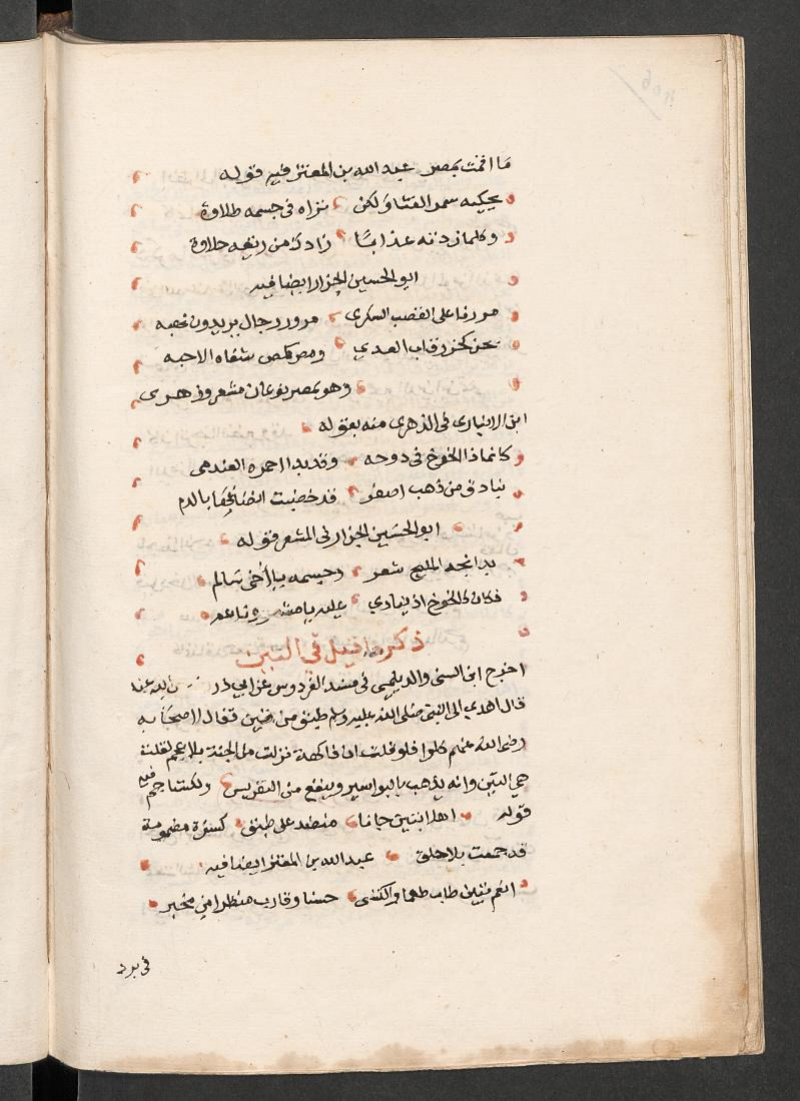 ما اختت بمصر عبد الله بن المعتز فيه قوله
يحكيه سمر القنا ولكن نراه في جسمه طلاوة
وكلما زدته عذابا زادك من ريقه حلاوة
ابو الحسين الجزار ايضا فيه
مررنا على القصب السكرى مرور رجال يريدون نحبه
نحن كحز رقاب العدي ومص كمص شفاه الاحبه
وهو بمصر نوعان مشعر وزهرى
ابن الانبارى في الزهرى منه بقوله
كانما الخوخ في دوحه وقد بدا احمره العندمى
بنادق من ذهب اصفر قد خضبت انصافها بالدم
ابو الحسين الجزار في المشعر قوله
بدا بخد المليح شعر وجسمه يا اخى سالم
فكان كالخوخ اذ ينادي عليه يا مشعر وناعم
ذكر ما قيل في التين
اخرج ابن السنى والديلمى في مسند الفردوس عن ابي ذر رضى الله عنه
قال اهدي الى النبى صلى الله عليه وسلم طبق من تين فقال لاصحابه
رضى الله عنهم كلوا فلو قلت ان فاكهة نزلت من الجنة بلا عجم لقلت
هي التين وانه يذهب بالبواسير وينفع من النقريس ولكشاجم فيه
قوله اهلا بتين جانا منضد على طبق كسفرة مضمومة
قد جمعت بلا حلق عبد الله بن المعتز ايضا فيه
انعم بتين طاب طعما واكتسى حسنا وقارب منظرا من مخبر
في برد